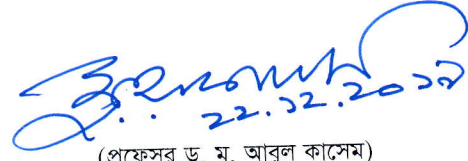 ২২.১২.২০১৯
(প্রফেসর ড. ম. আবুল কাসেম)